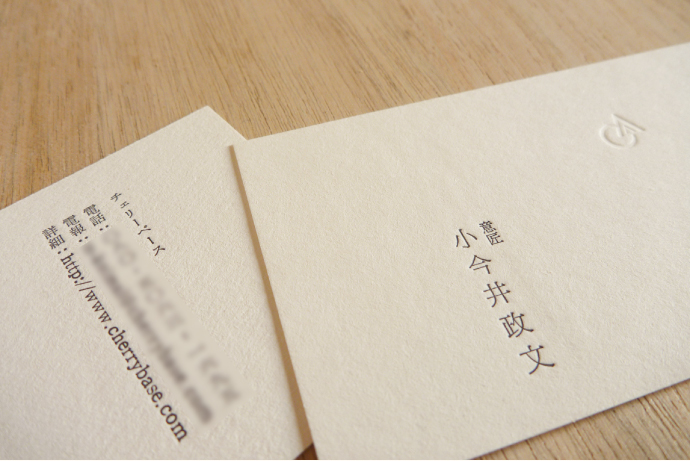 チェリーベース
電話:
電報:
詳細:http://www.cherrybase.com
意匠
小今井政文